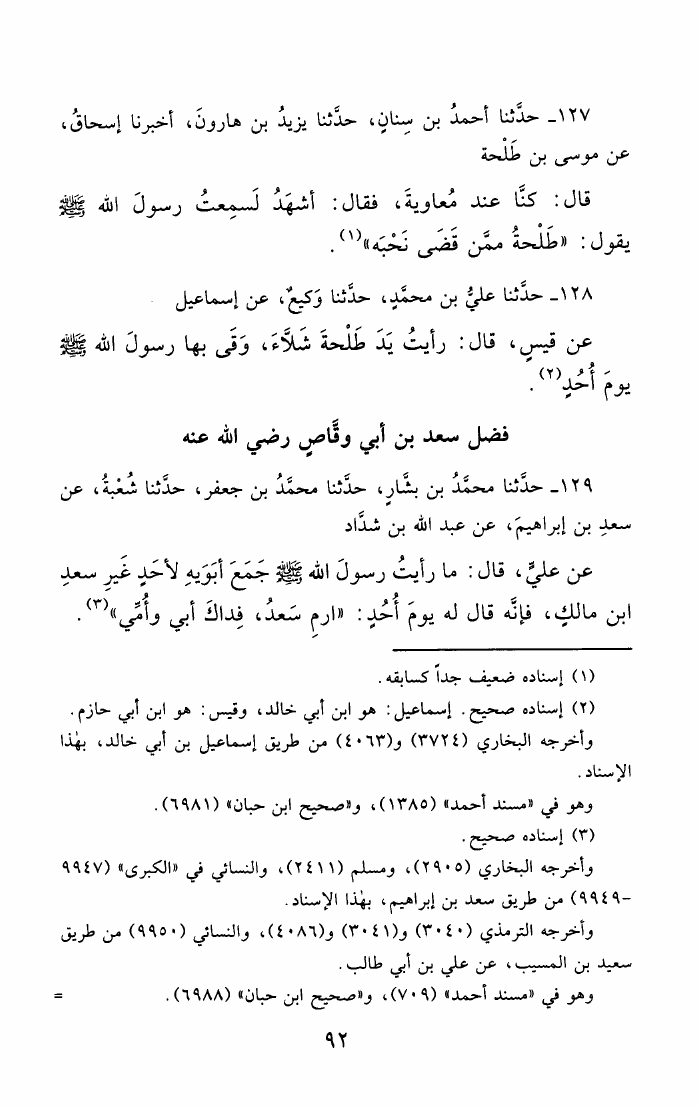 ١٢٧ـ حدَّثنا أحمدُ بن سِنانٍ، حدَّثنا يزيدُ بن هارونَ، أخبرنا إسحاقُ،
عن موسى بن طَلْحة
قال: كنَّا عند مُعاويةَ، فقال: أشهَدُ لَسمِعتُ رسولَ الله ﷺ
يقول: «طَلْحةُ ممَّن قَضَى نَحْبَه»(١).
١٢٨ـ حدَّثنا عليُّ بن محمَّدٍ، حدَّثنا وَكيعٌ، عن إسماعيل
عن قيسٍ، قال: رأيتُ يَدَ طَلْحةَ شَلَّاءَ، وَقَى بها رسولَ الله ﷺ
يومَ أُحُدٍ(٢).
فضل سعد بن أبي وقَّاصٍ رضي الله عنه
١٢٩ـ حدَّثنا محمَّدُ بن بشَّارٍ، حدَّثنا محمَّدُ بن جعفر، حدَّثنا شُعْبةُ، عن
سعدِ بن إبراهيمَ، عن عبد الله بن شدَّاد
عن عليٍّ، قال: ما رأيتُ رسولَ الله ﷺ جَمَعَ أبَوَيهِ لأحَدٍ غَيرِ سعدِ
ابن مالكٍ، فإنَّه قال له يومَ أُحُدٍ: «ارمِ سَعدُ، فِداكَ أبي وأُمِّي»(٣).
(١) إسناده ضعيف جداً كسابقه.
(٢) إسناده صحيح. إسماعيل: هو ابن أبي خالد، وقيس: هو ابن أبي حازم.
وأخرجه البخاري (٣٧٢٤) و(٤٠٦٣) من طريق إسماعيل بن أبي خالد، بهٰذا
الإسناد.
وهو في «مسند أحمد» (١٣٨٥)، و«صحيح ابن حبان» (٦٩٨١).
(٣) إسناده صحيح.
وأخرجه البخاري (٢٩٠٥)، ومسلم (٢٤١١)، والنسائي في «الكبرى» (٩٩٤٧
-٩٩٤٩) من طريق سعد بن إبراهيم، بهٰذا الإسناد.
وأخرجه الترمذي (٣٠٤٠) و(٣٠٤١) و(٤٠٨٦)، والنسائي (٩٩٥٠) من طريق
سعيد بن المسيب، عن علي بن أبي طالب.
وهو في «مسند أحمد» (٧٠٩)، و«صحيح ابن حبان» (٦٩٨٨). =
٩٢